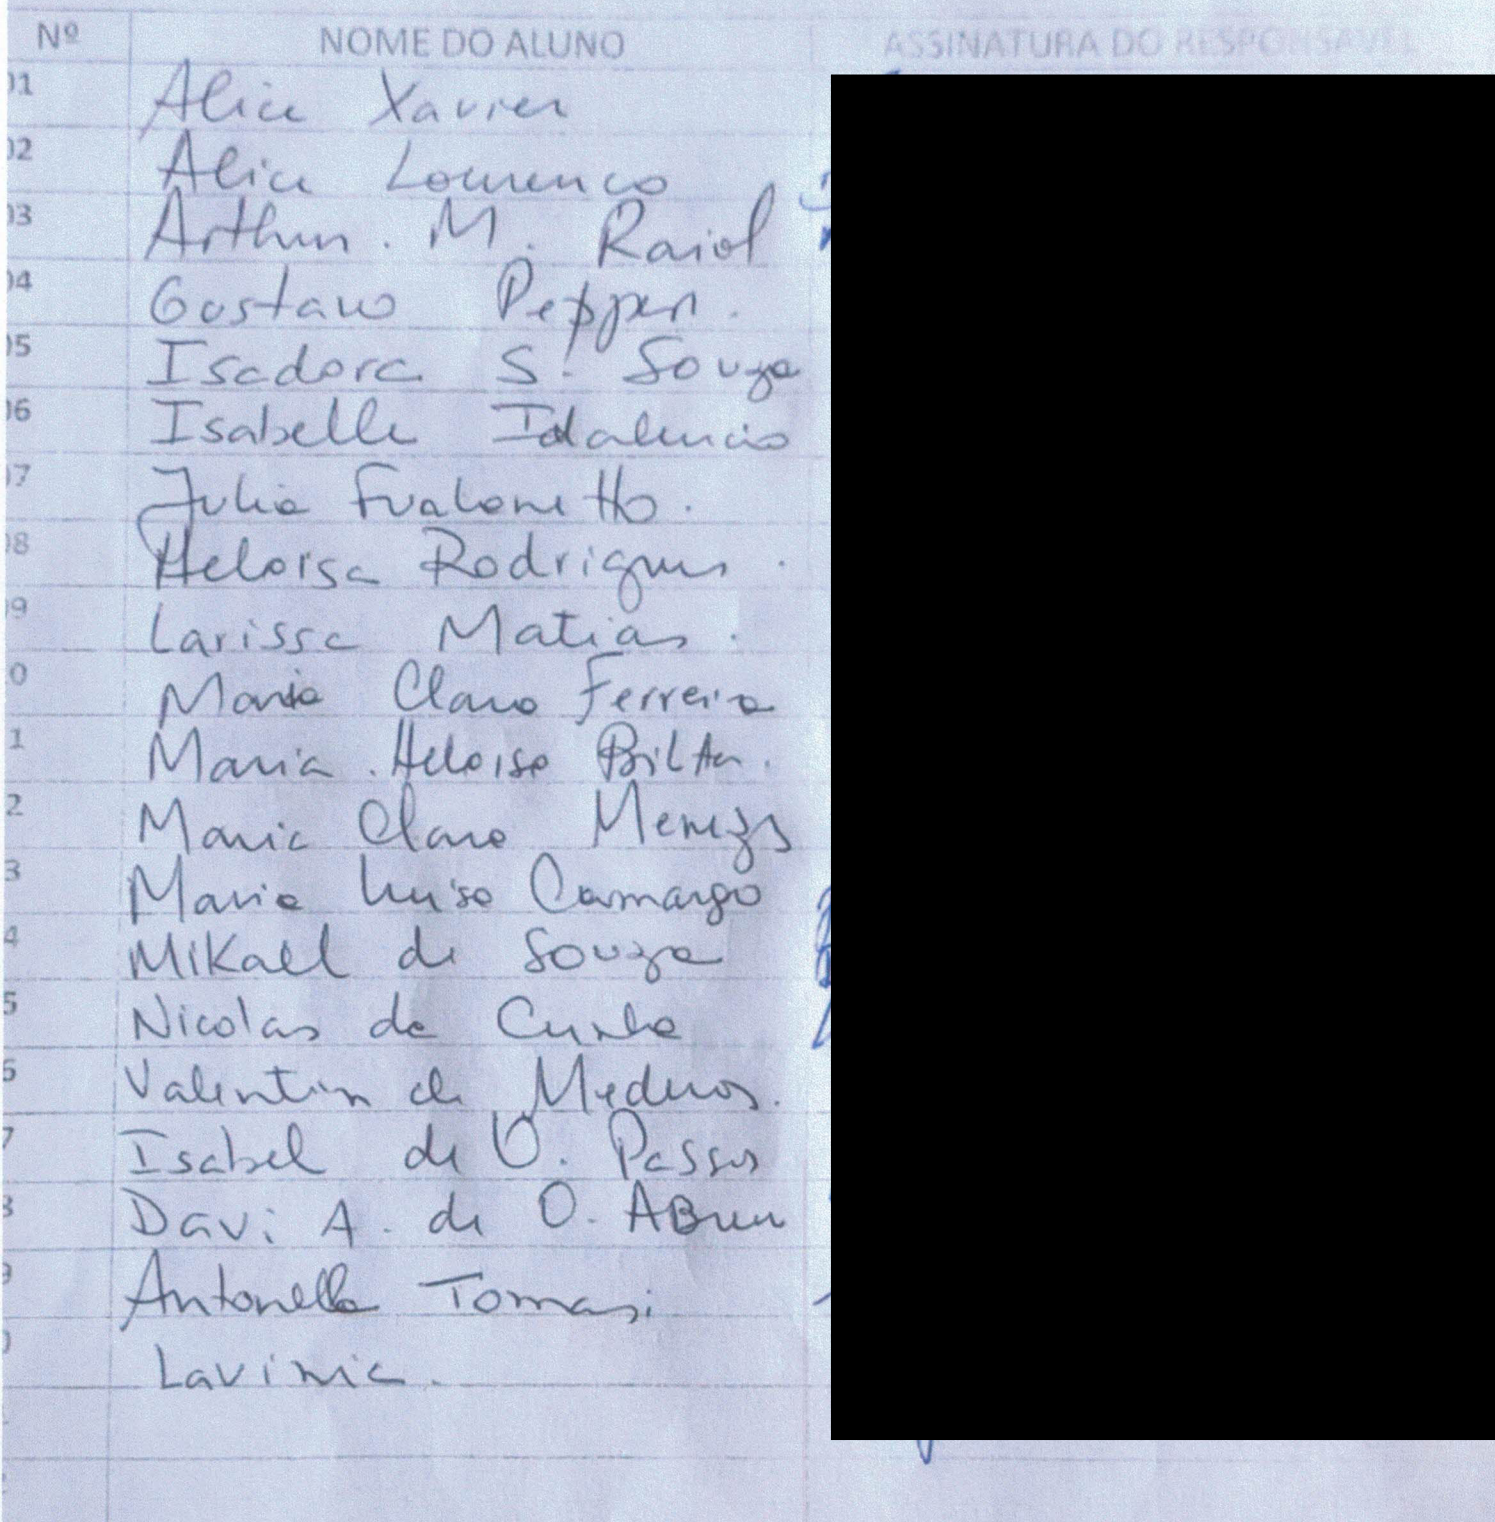 Nº NOME DO ALUNO ASSINATURA DO RESPONSÁVEL
01 Alice Xavier
02 Alice Lourenco
03 Arthur. M. Raiol
04 Gustavo Pepper.
05 Isadora S. Souza
06 Isabelle Idalencio
07 Julia
08 Heloisa Rodrigues.
09 Larissa Matias.
0 Maria Clara Ferreira
1 Maria Heloisa
2 Maria Clara Menezes
3 Maria Luisa Camargo
4 Mikael de Souza
5 Nicolas da Cunha
6 Valentin de Medeiros.
7 Isabel de O. Passos
8 Davi A. de O. Abreu
9 Antonella Tomasi
0 Lavinia.